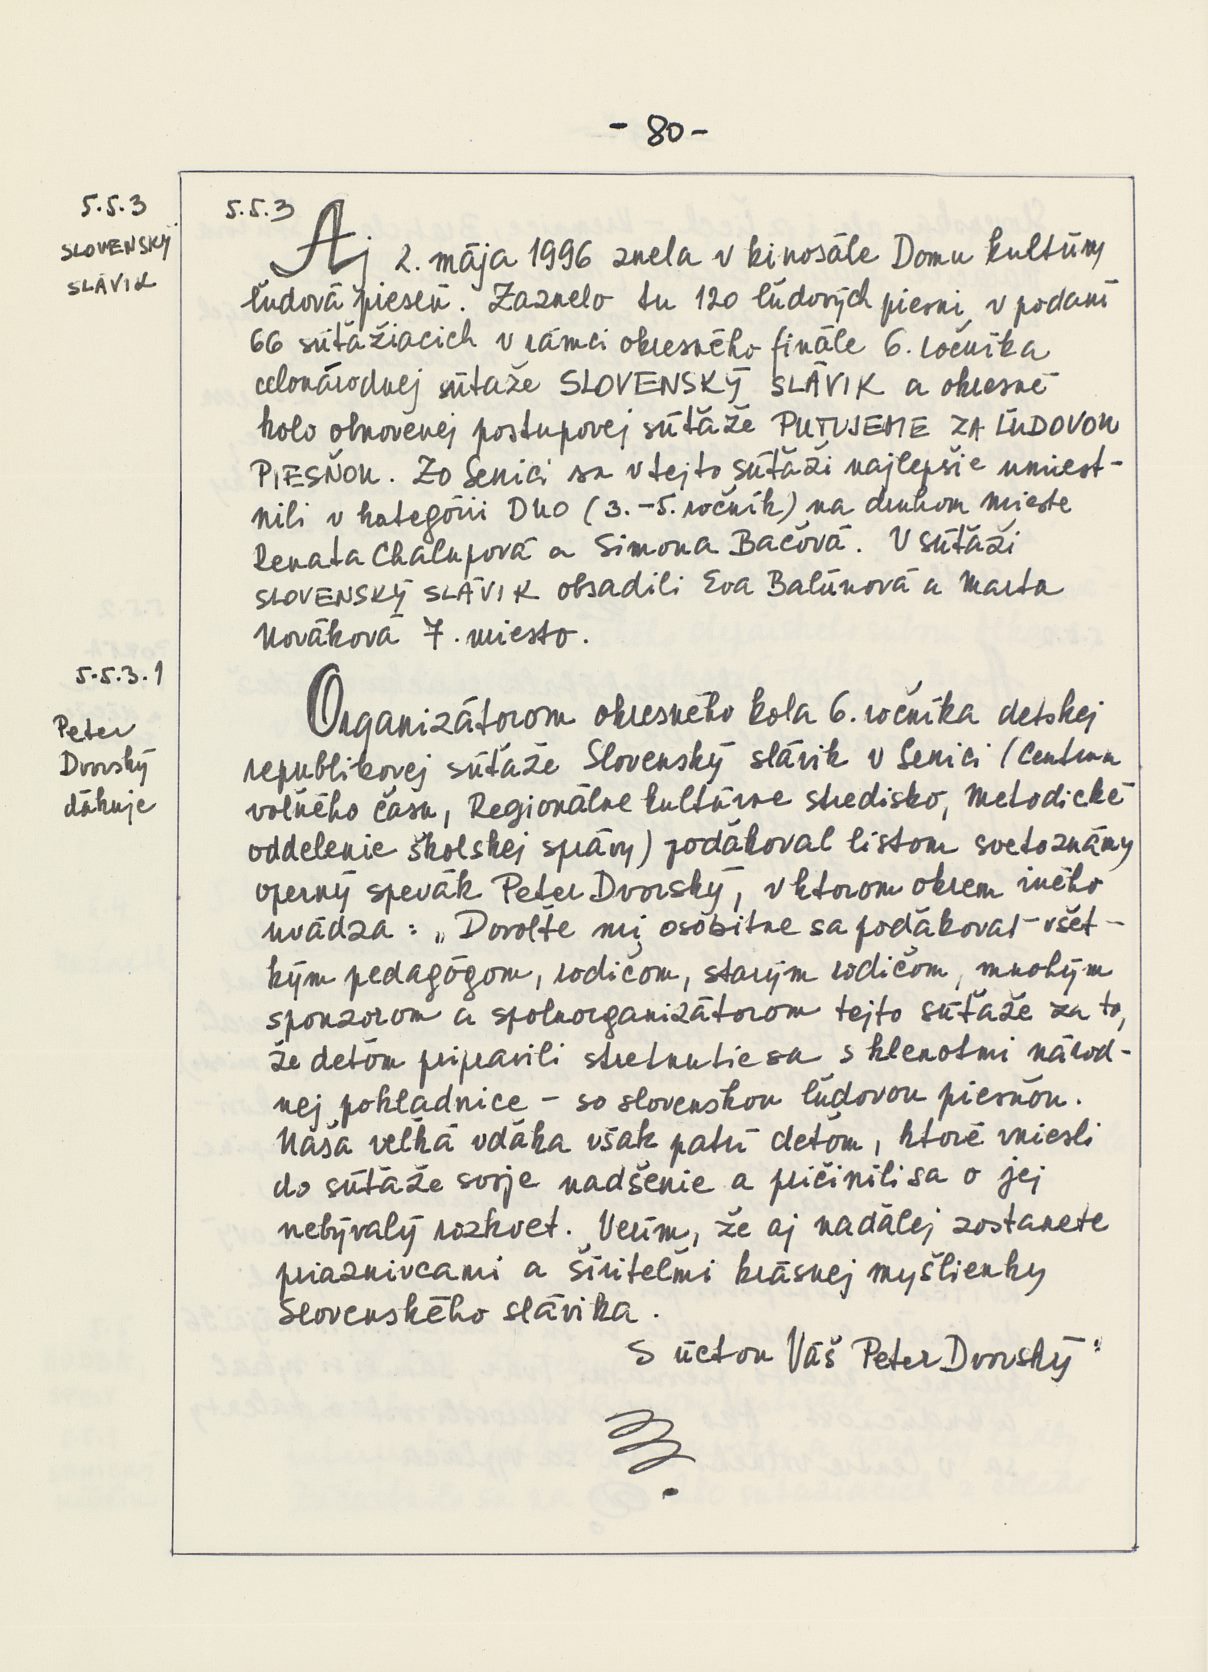 - 80 -
5.5.3
SLOVENSKÝ
SLÁVIK
5.5.3 Aj 2. mája 1996 znela v kinosále Domu kultúry
ľudová pieseň. Zaznelo tu 120 ľudových piesní, v podaní
66 súťažiacich v rámci okresného finále 6. ročníka
celonárodnej súťaže SLOVENSKÝ SLÁVIK a okresné
kolo obnovenej postupovej súťaže PUTUJEME ZA ĽUDOVOU
PIESŇOU. Zo Senici sa v tejto súťaži najlepšie umiest-
nili v kategórii DUO (3.-5. ročník) na druhom mieste
Renata Chalupová a Simona Bačová. V súťaži
SLOVENSKÝ SLÁVIK obsadili Eva Balúnová a Marta
Nováková 7. miesto.
5.5.3.1
Peter
Dvorský
ďakuje
Organizátorom okresného kola 6. ročníka detskej
republikovej súťaže Slovenský slávik v Senici (Centrum
voľného času, Regionálne kultúrne stredisko, Metodické
oddelenie školskej správy) poďakoval listom svetoznámy
operný spevák Peter Dvorský, v ktorom okrem iného
uvádza: „Dovoľte mi, osobitne sa poďakovať všet-
kým pedagógom, rodičom, starým rodičom, mnohým
sponzorom a spoluorganizátorom tejto súťaže za to,
že deťom pripravili stretnutie sa s klenotmi národ-
nej pokladnice - so slovenskou ľudovou piesňou.
Naša veľká vďaka však patrí deťom, ktoré vniesli
do súťaže svoje nadšenie a pričinili sa o jej
nebývalý rozkvet. Verím, že aj naďalej zostanete
priaznivcami a šíriteľmi krásnej myšlienky
Slovenského slávika.
S úctou Váš Peter Dvorský"